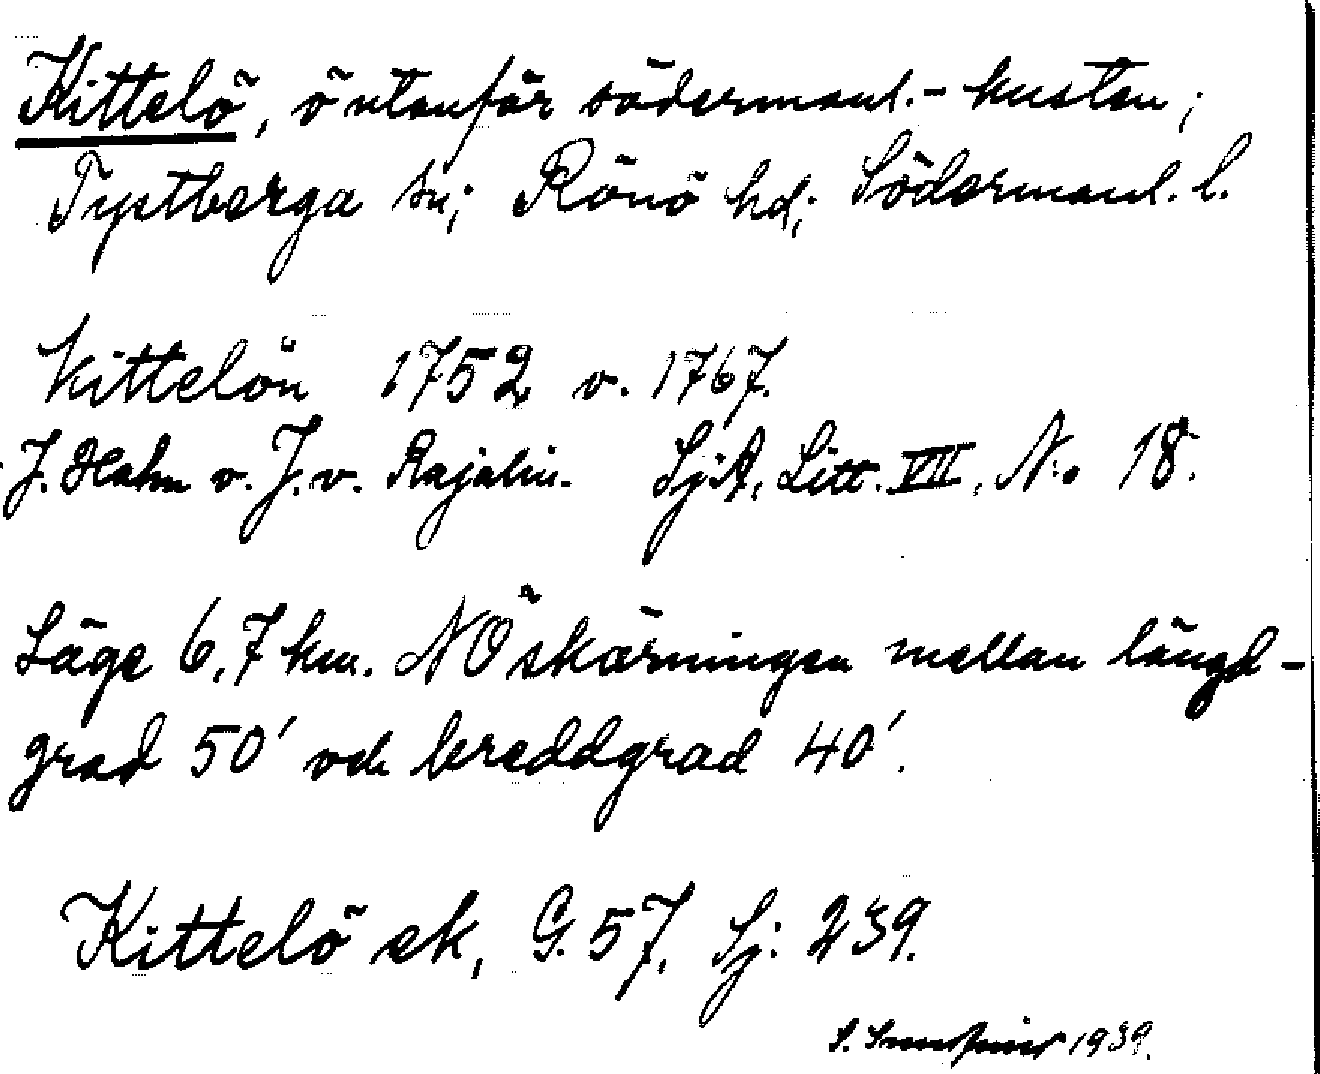 Kittelö, ö utanför södermanl.-kusten;
Tystberga sn; Rönö hd; Södermanl. l.
Kittelön 1752 o. 1767.
J. Hahn o. J. v. Rajalin. SjA, Litt. VIII, No 18.
Läge 6,7 km. NÖ skärningen mellan längd-
grad 50' och breddgrad 40'.
Kittelö ek, G. 57, Sj: 239.
S. 1939.